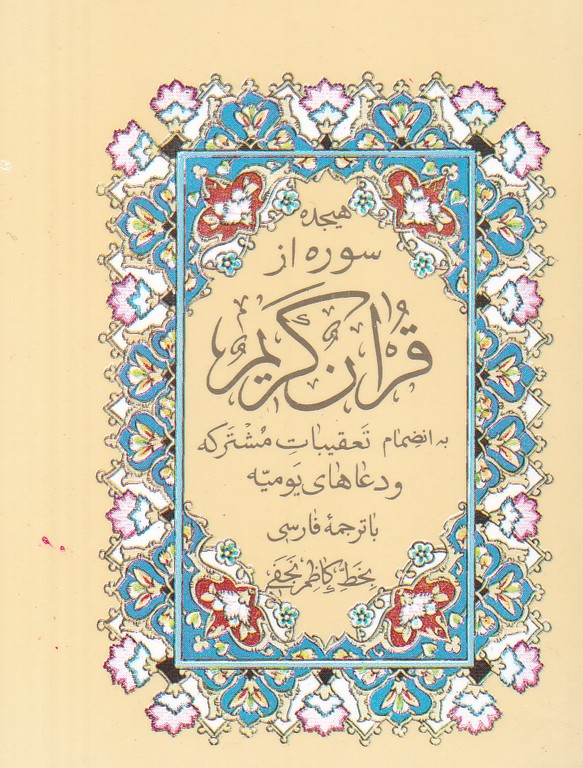 هیجده
سوره از
قرآن کریم
به انضمام تعقیبات مشترکه
و دعاهای یومیّه
با ترجمهٔ فارسی
بخط کاظم نجفی